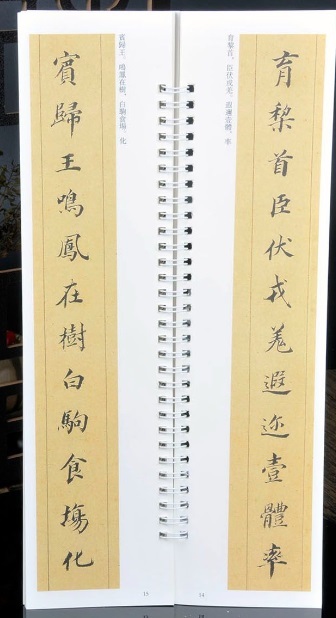 育黎首臣伏戎羌遐迩壹體率
育黎首，臣伏戎羌。遐邇壹體，率
14
賓歸王鳴鳳在樹白駒食塲化
賓歸王。鳴鳳在樹，白駒食場。化
15